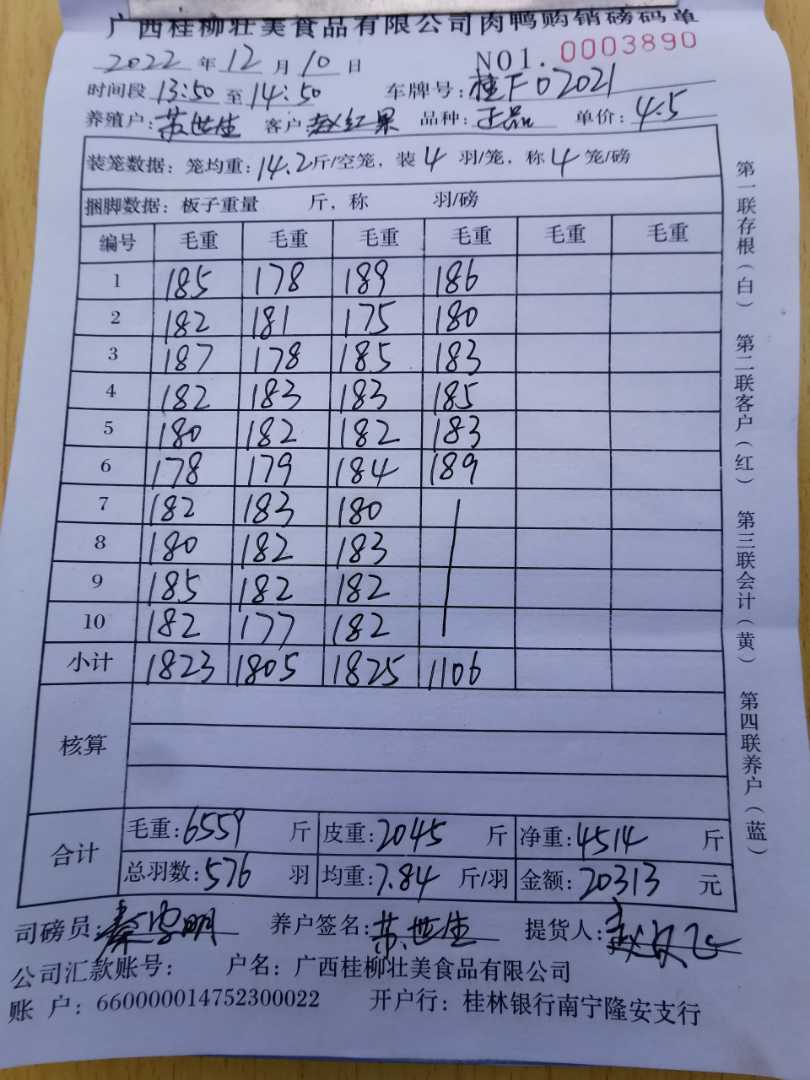 广西桂柳壮美食品有限公司肉鸭购销磅码单
2022 年 12 月 10 日 NO1. 0003890
时间段 13:50 至 14:50 车牌号: 桂F02021
养殖户: 苏世生 客户: 赵红果 品种: 正品 单价: 4.5
装笼数据: 笼均重: 14.2 斤/空笼, 装 4 羽/笼, 称 4 笼/磅
捆脚数据: 板子重量 斤, 称 羽/磅
编号 毛重 毛重 毛重 毛重 毛重 毛重
1 185 178 189 186
2 182 181 175 180
3 187 178 185 183
4 182 183 183 185
5 180 182 182 183
6 178 179 184 189
7 182 183 180
8 180 182 183
9 185 182 182
10 182 177 182
小计 1823 1805 1825 1106
核算
合计
毛重: 6559 斤 皮重: 2045 斤 净重: 4514 斤
总羽数: 576 羽 均重: 7.84 斤/羽 金额: 20313 元
司磅员: 养户签名: 苏世生 提货人:
公司汇款账号: 户名: 广西桂柳壮美食品有限公司
账 户: 660000014752300022 开户行: 桂林银行南宁隆安支行
第一联存根(白) 第二联客户(红) 第三联会计(黄) 第四联养户(蓝)